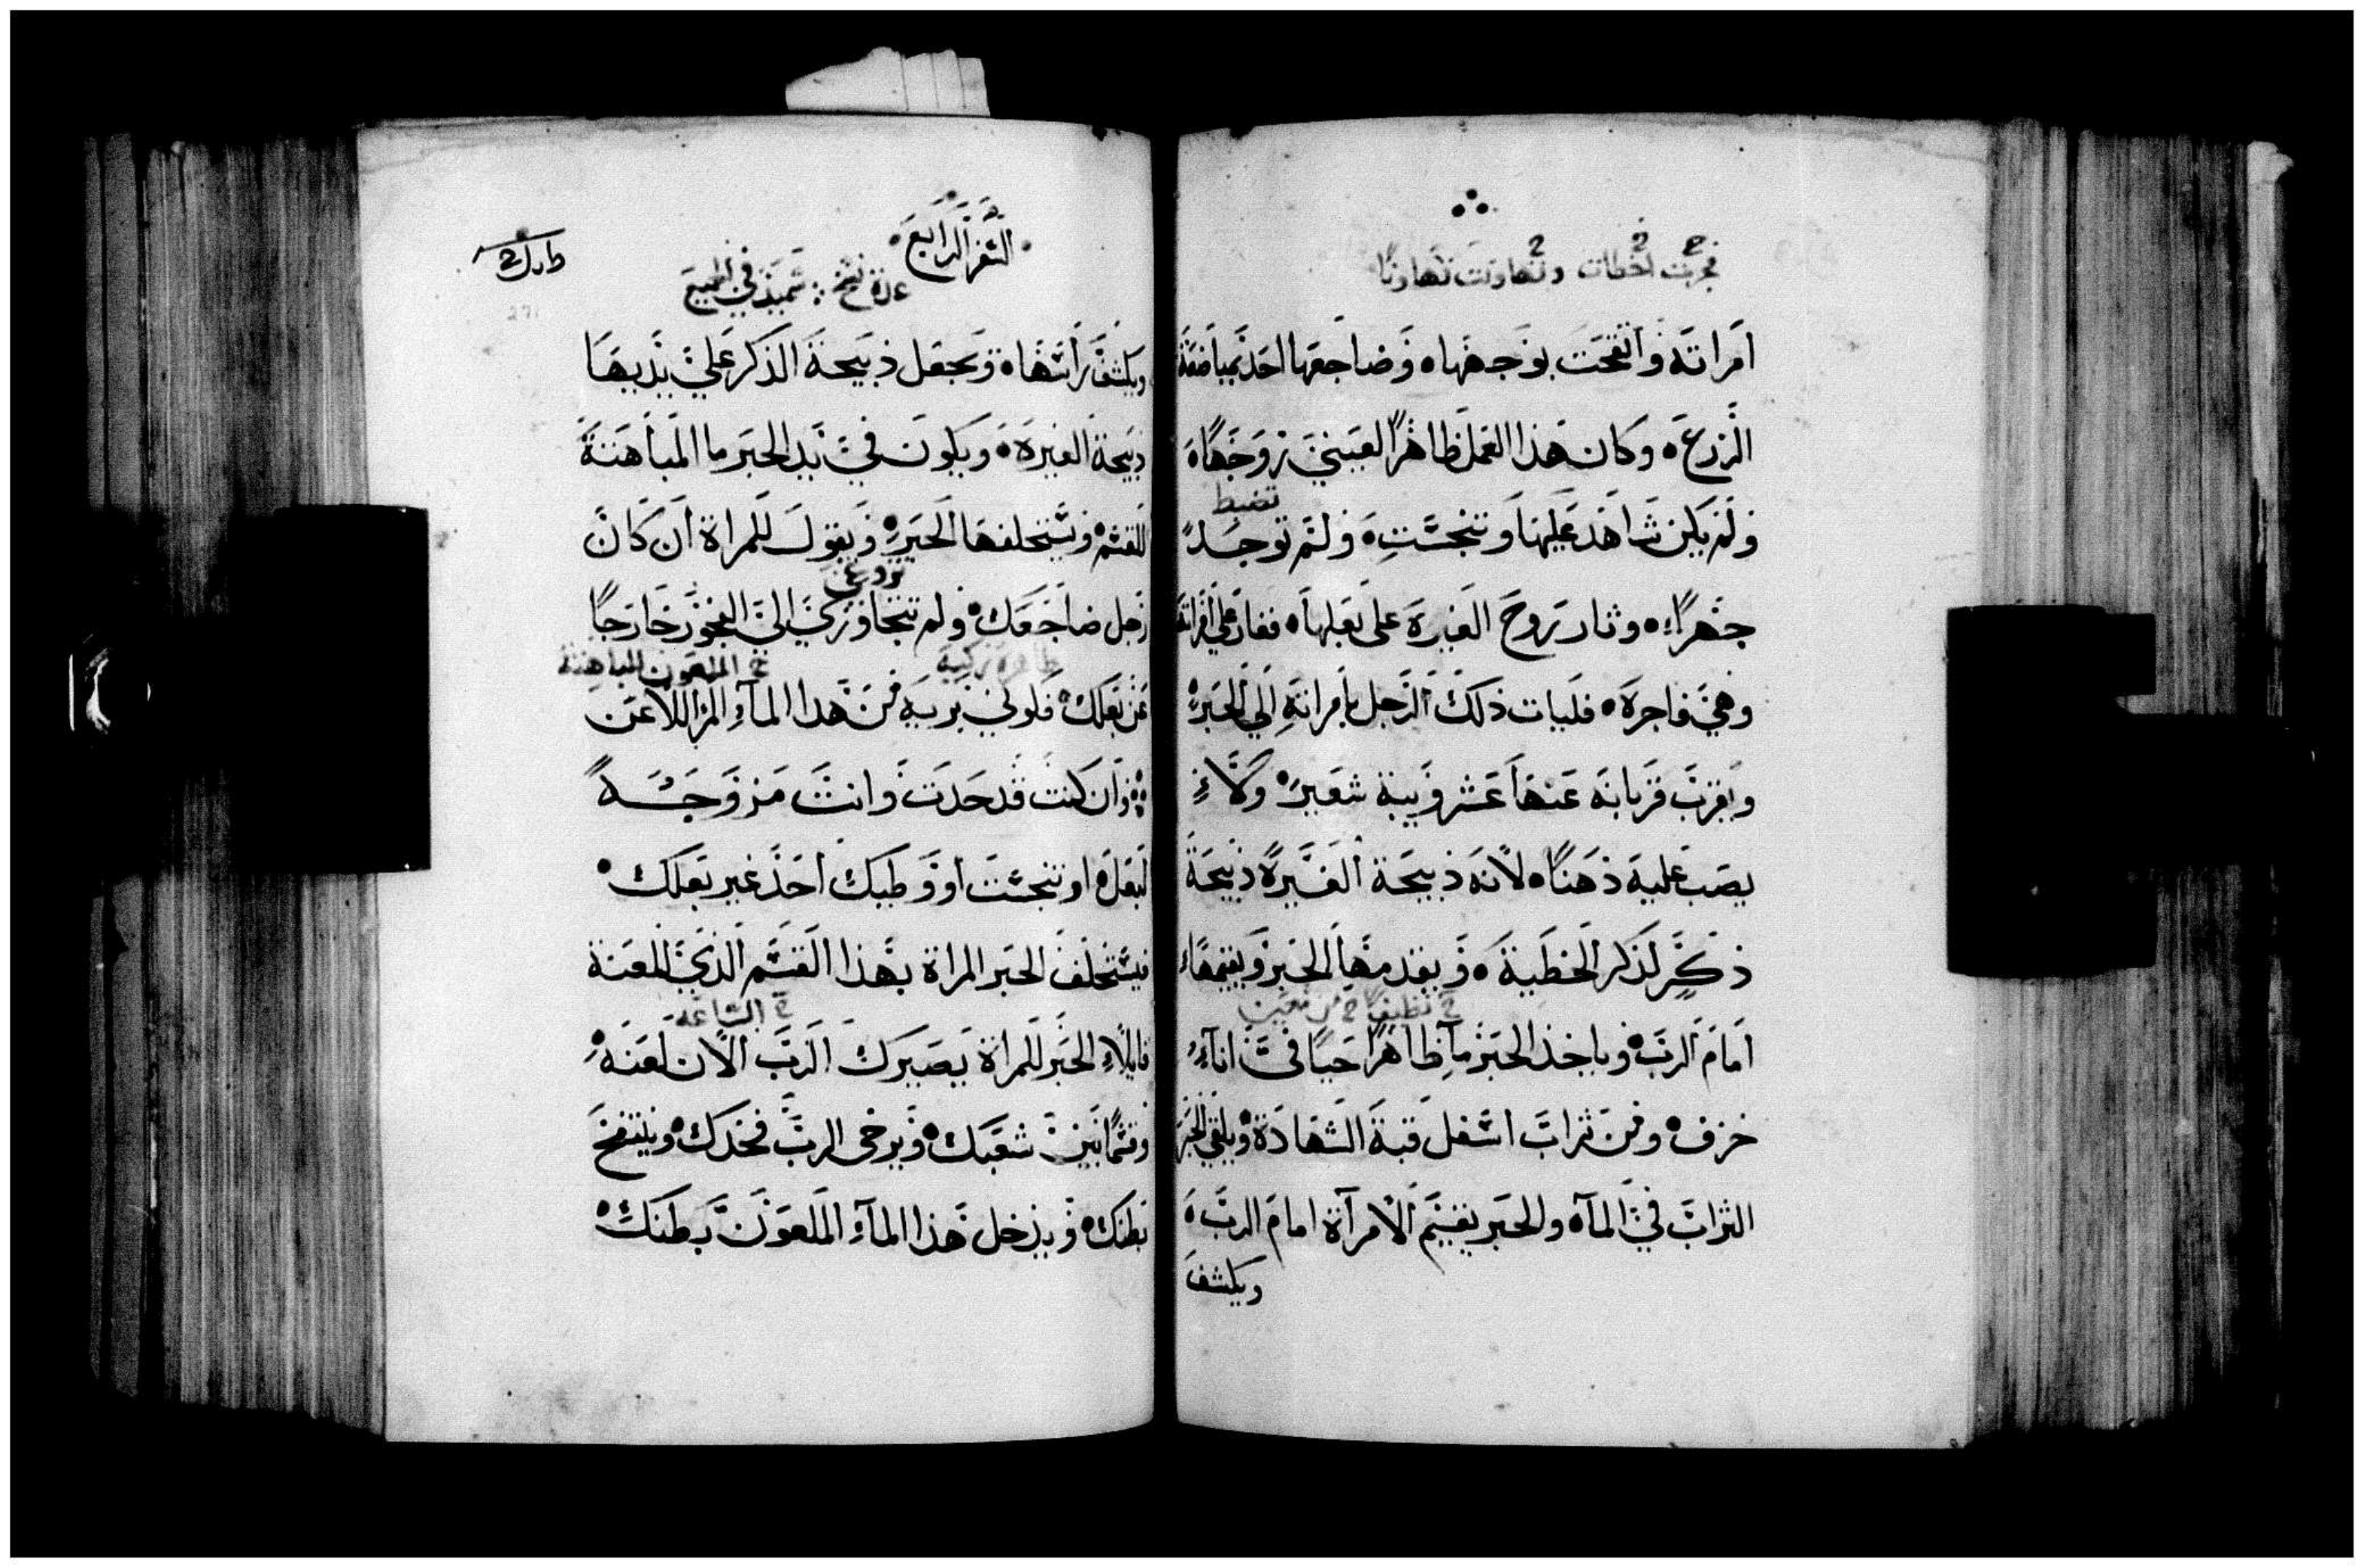 فجرت اخطات وتهاونت تهاونًا
امراته واتقحت بوجهها ه وضاجعها احد بمباضعة
الزرع ه وكان هذا العمل ظاهرًا لعيني زوجها ه
تضبط
ولم يكن شاهد عليها وتنجست ه ولم توجد
جهرًا ه وثار روح الغيرة على بعلها ه فغار على امراته
وهي فاجرة ه فليات ذلك الرجل بامراته الي الحبر
ويقرب قربانه عنها عشر ويبة شعير ه وكلا
يصب عليه دهنًا ه لانه ذبيحة الغيرة ذبيحة
ذكر لذكر الخطية ه ويقدمها الحبر ويقيمها
خ نظيفًا خ من معين
امام الرب ه وياخذ الحبر ما ظاهرًا حيًا في اناء
خزف ه ومن تراب اسفل قبة الشهادة ه ويلقي الحبر
التراب في الماء ه والحبر يقيم الامراة امام الرب ه
ويكشف
السفر الرابع
عدة نسخ ∴ سميذ في الجميع
ويكشف راسها ه ويجعل ذبيحة الذكر علي يديها
ذبيحة الغيرة ه ويكون في يد الحبر ما المباهنة
للقسم ه ويستحلفها الحبر ه ويقول للمراة ان كان
تزوغي
رجل ضاجعك ه ولم تتجاوزي الى الفجور خارجًا
طاهرة زكية خ الملعون المباهنة
عن بعلك ه فلوني برية من هذا الماء المر اللاعن
∴ وان كنت قد حدت وانت مزوجة
لبعل ه او تنجست او وطيك احد غير بعلك ه
فيستحلف الحبر المراة بهذا القسم الذي للعنة
خ الساعة
قايلا الحبر للمراة يصيرك الرب الان لعنة ه
وقسمًا بين شعبك ه ويرخى الرب فخدك ه وينتفخ
بطنك ه ويدخل هذا الماء الملعون بطنك ه